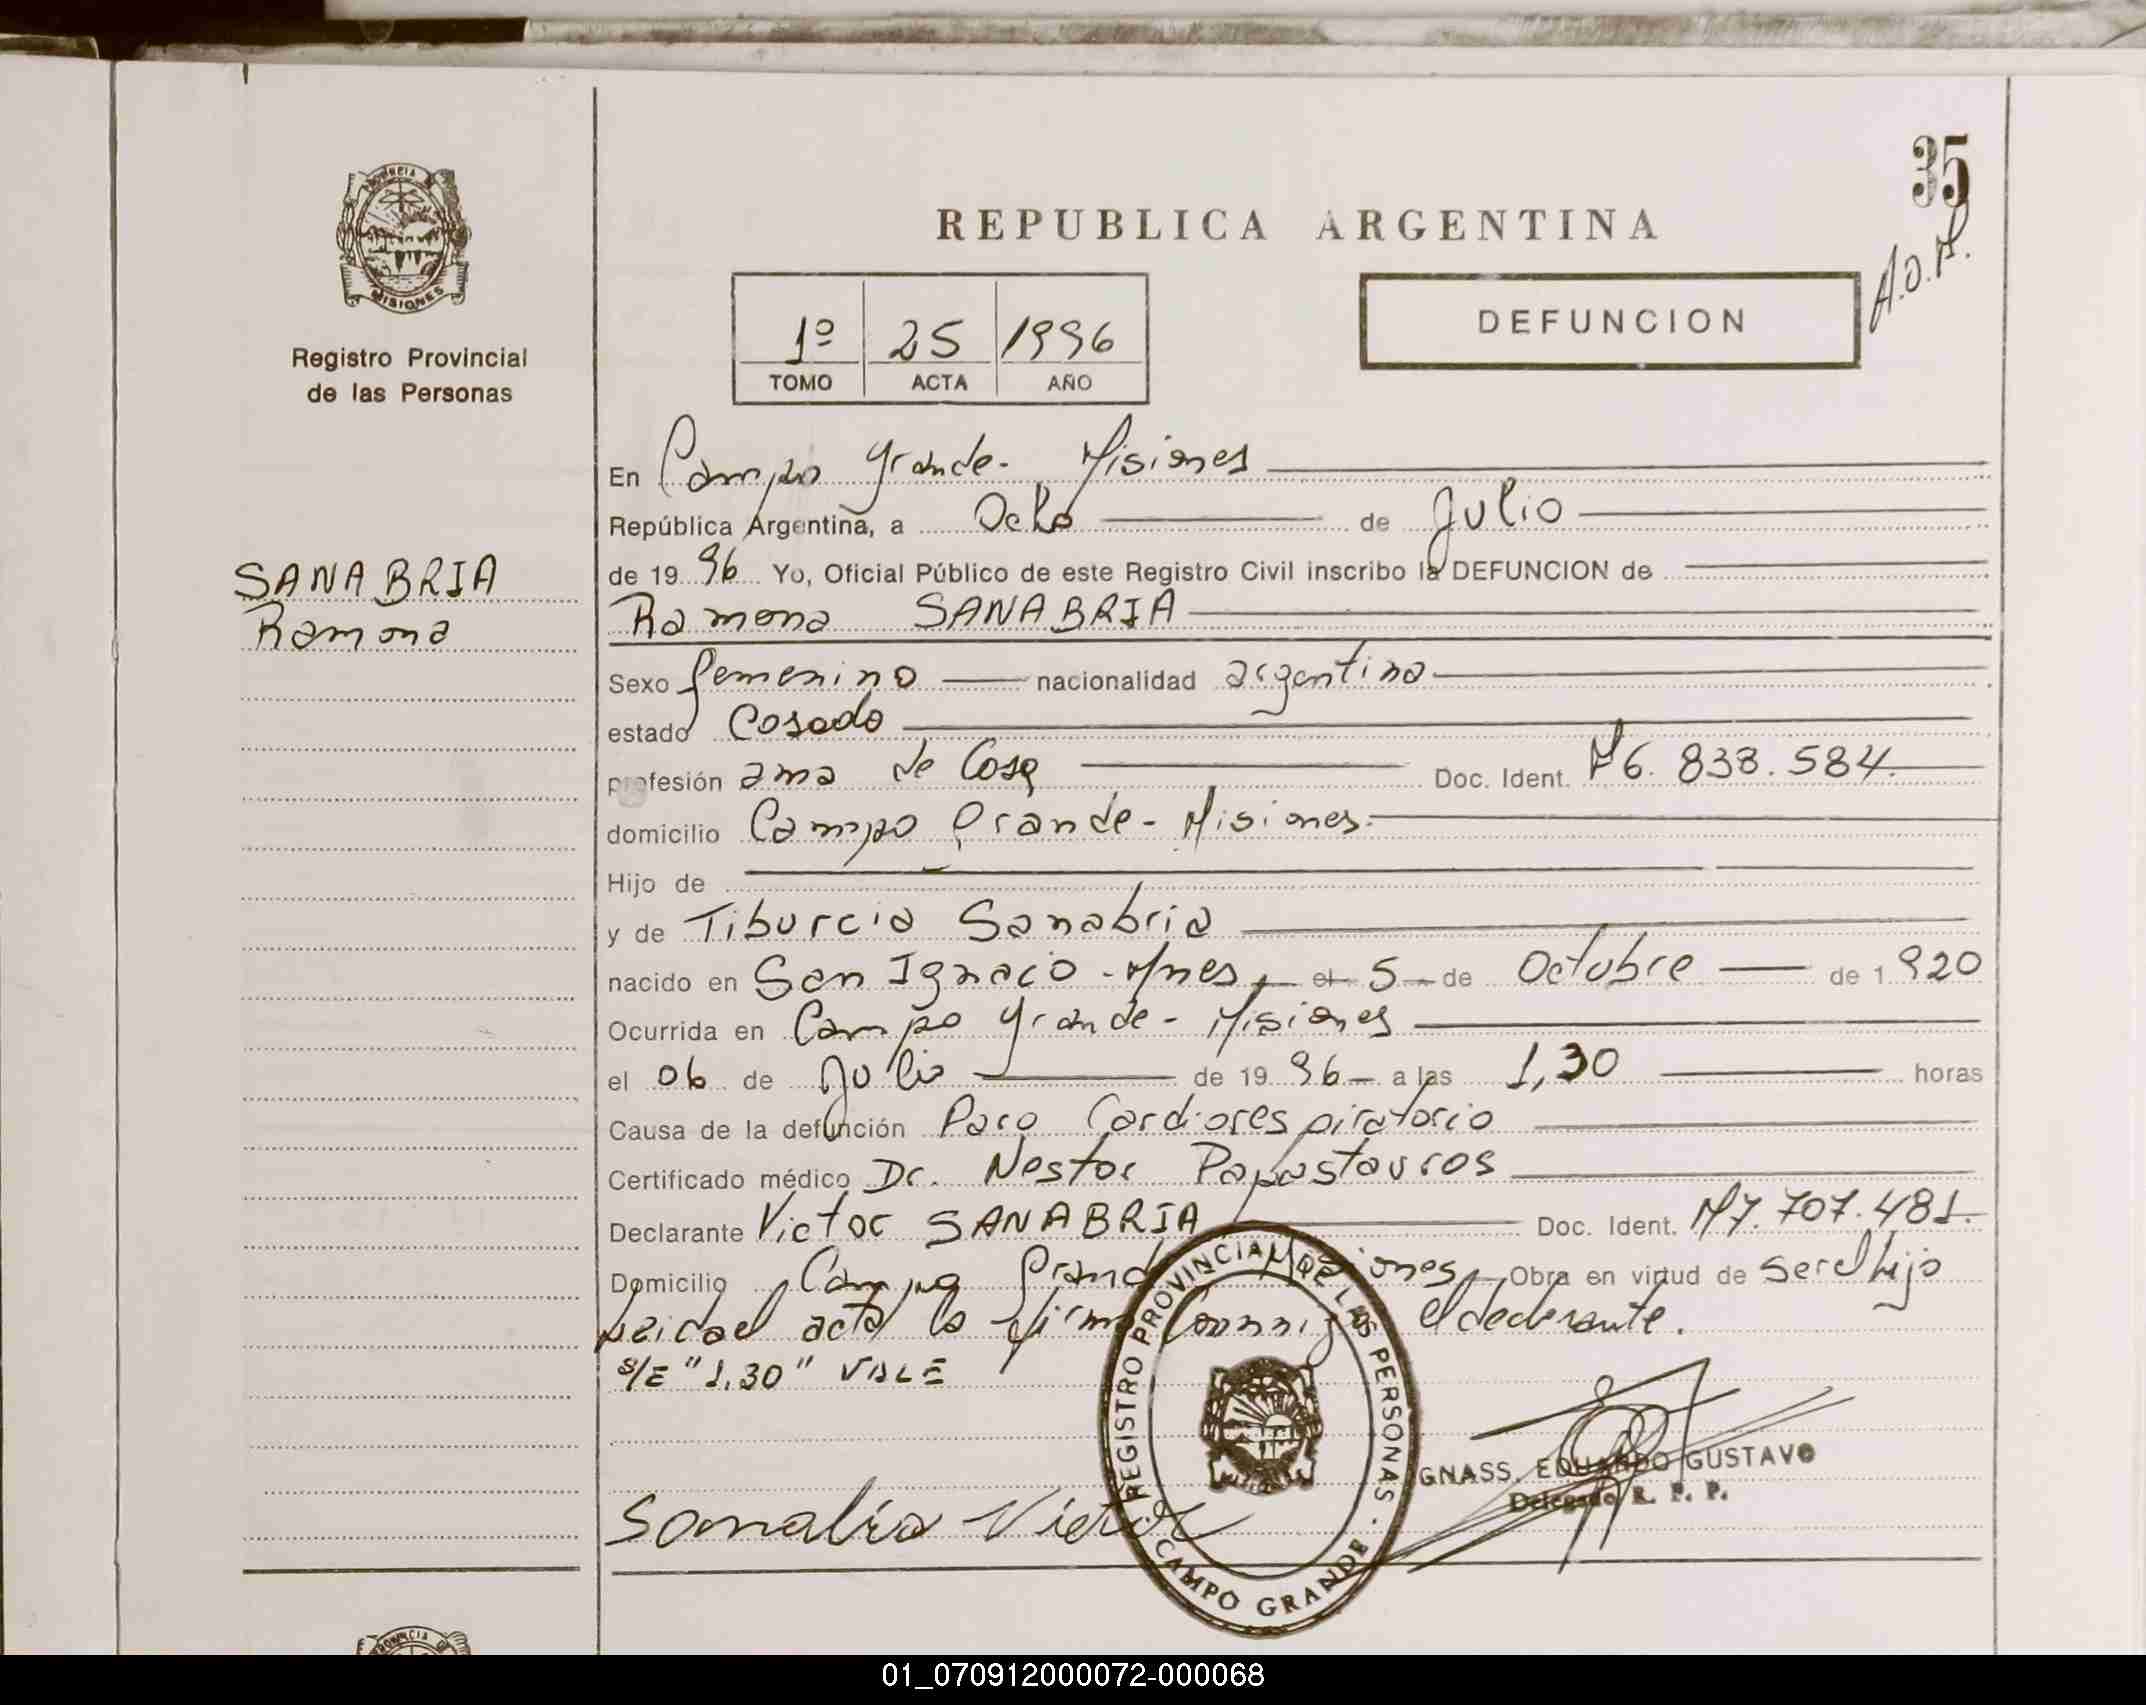 35
A.D.A.
PROVINCIA DE
MISIONES
REPUBLICA ARGENTINA
Registro Provincial
de las Personas
1º 25 1996
TOMO ACTA AÑO
DEFUNCION
En Campo Grande - Misiones
República Argentina, a Ocho de Julio
de 1996 Yo, Oficial Público de este Registro Civil inscribo la DEFUNCION de
SANABRIA
Ramona
Ramona SANABRIA
Sexo femenino nacionalidad argentina
estado Casado
profesión ama de Casa Doc. Ident. M6.838.584.
domicilio Campo Grande - Misiones.
Hijo de
y de Tiburcia Sanabria
nacido en San Ignacio - Mnes, el 5 de Octubre de 1920
Ocurrida en Campo Grande - Misiones
el 06 de Julio de 1996 a las 1,30 horas
Causa de la defunción Paro Cardiorespiratorio
Certificado médico Dr. Nestor Papastavros
Declarante Victor SANABRIA Doc. Ident. M7.707.481.
Domicilio Campo Grande Misiones Obra en virtud de ser el hijo
Leida el acta la firma Conmigo el declarante.
S/E "1.30" VALE
REGISTRO PROVINCIAL DE LAS PERSONAS.
CAMPO GRANDE
GNASS, EDUARDO GUSTAVO
Delegado R. P. P.
Sanabria Victor
PROVINCIA
01_070912000072-000068